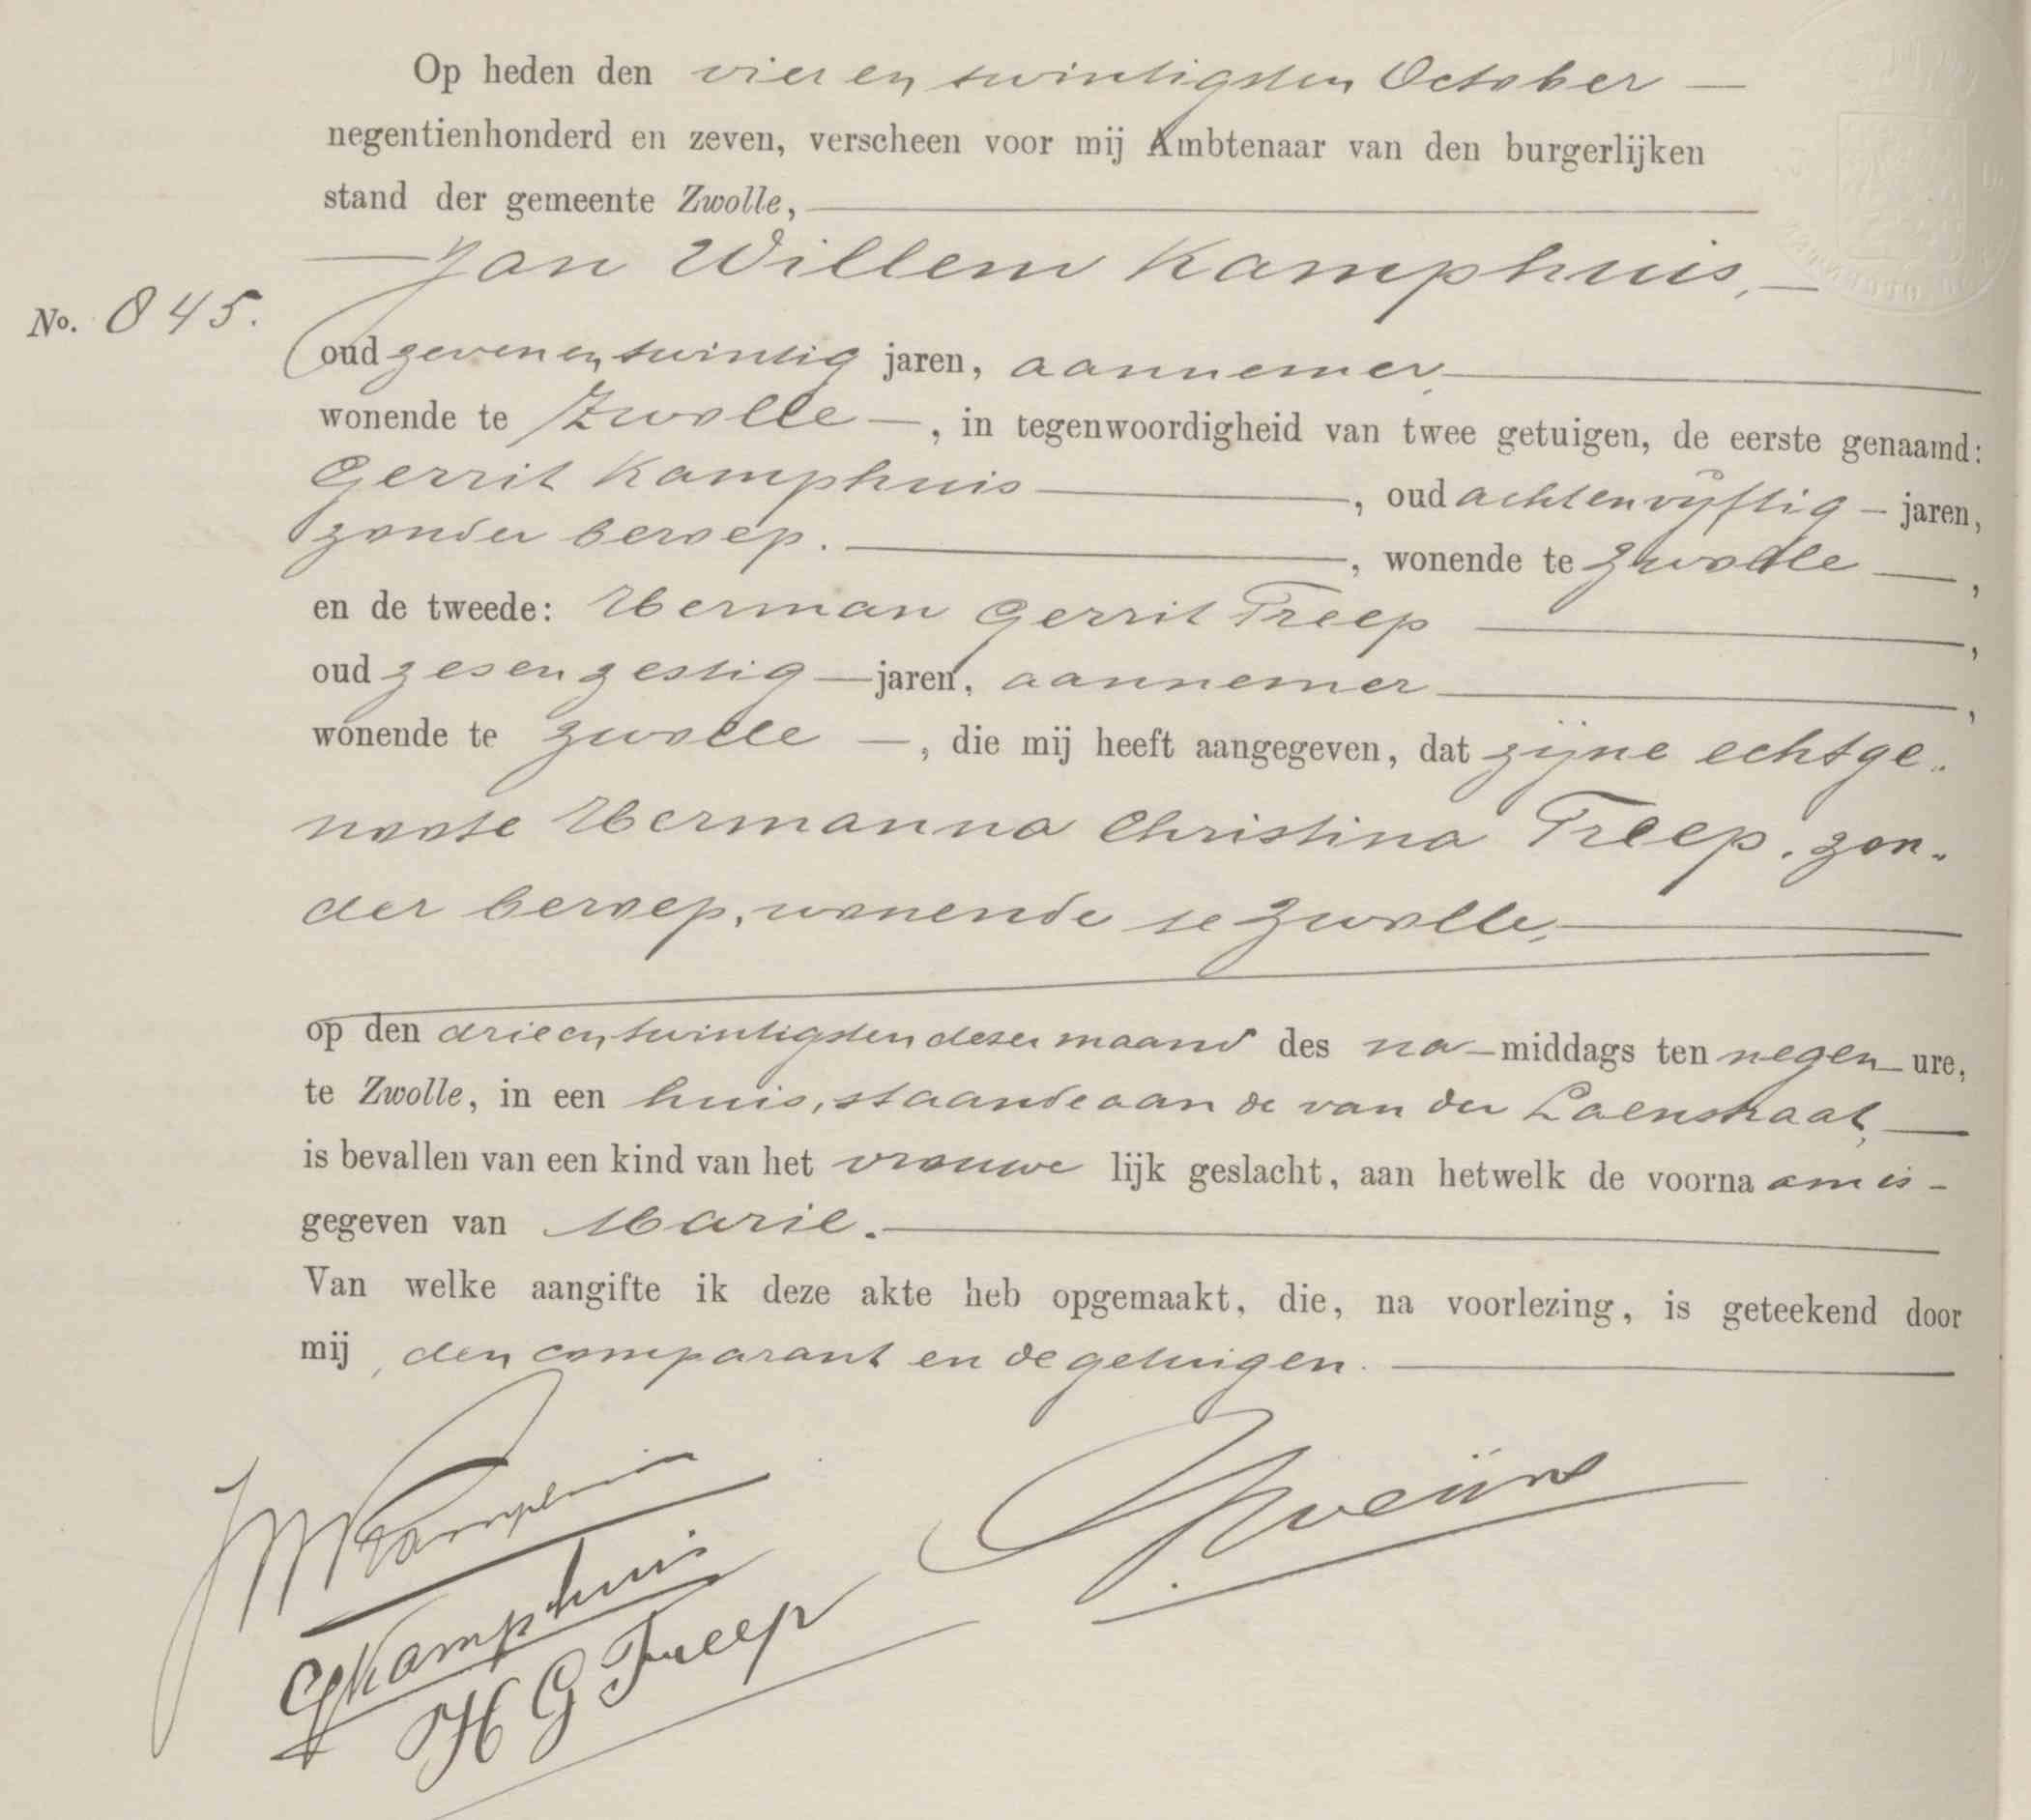 Op heden den vier en twintigsten October —
negentienhonderd en zeven, verscheen voor mij Ambtenaar van den burgerlijken
stand der gemeente Zwolle,
Jan Willem Kamphuis,
No. 845.
oud zeven en twintig jaren, aannemer
wonende te Zwolle —, in tegenwoordigheid van twee getuigen, de eerste genaamd:
Gerrit Kamphuis —, oud achtenvijftig — jaren,
zonder beroep. —, wonende te Zwolle —,
en de tweede: Herman Gerrit Treep —,
oud zesenzestig — jaren, aannemer —,
wonende te Zwolle —, die mij heeft aangegeven, dat zijne echtge„
noote Hermanna Christina Treep, zon„
der beroep, wonende te Zwolle,
op den drieentwintigsten dezer maand des na-middags ten negen ure,
te Zwolle, in een huis, staande aan de van der Laenstraat,
is bevallen van een kind van het vrouwe lijk geslacht, aan hetwelk de voorna am is -
gegeven van Marie.
Van welke aangifte ik deze akte heb opgemaakt, die, na voorlezing, is geteekend door
mij, den comparant en de getuigen.
JW Kamphuis
G Kamphuis
H G Treep